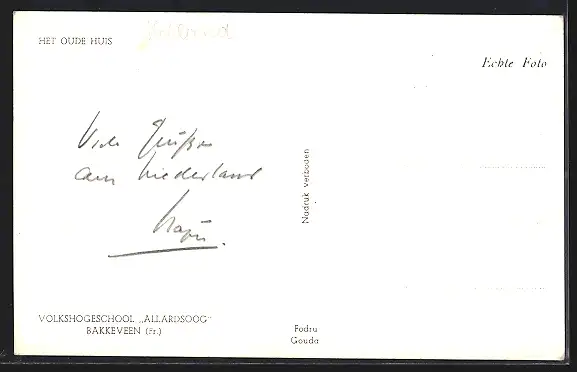 HET OUDE HUIS
Echte Foto
Viele Grüße
aus Niederland
Nadruk verboden
VOLKSHOGESCHOOL „ALLARDSOOG”
BAKKEVEEN (Fr.)
Fodru
Gouda